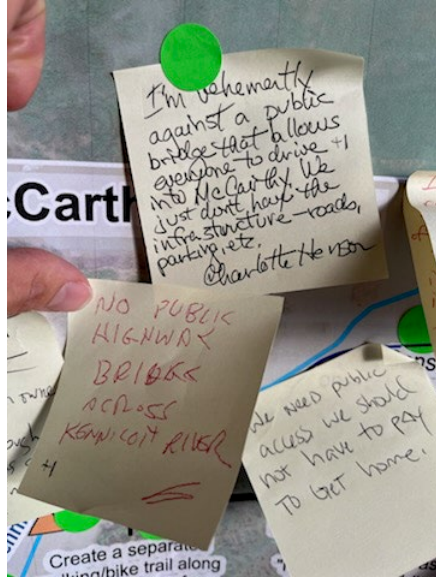 I'm vehemently
against a public
bridge that allows
everyone to drive +1
into McCarthy. We
just don't have the
infrastructure - roads,
parking, etc.
Charlotte Henson
cCarth
NO PUBLIC
HIGHWAY
BRIDGE
ACROSS
KENNICOTT RIVER
+1
We need public
access we should
not have to pay
to get home.
Create a separate
king/bike trail along